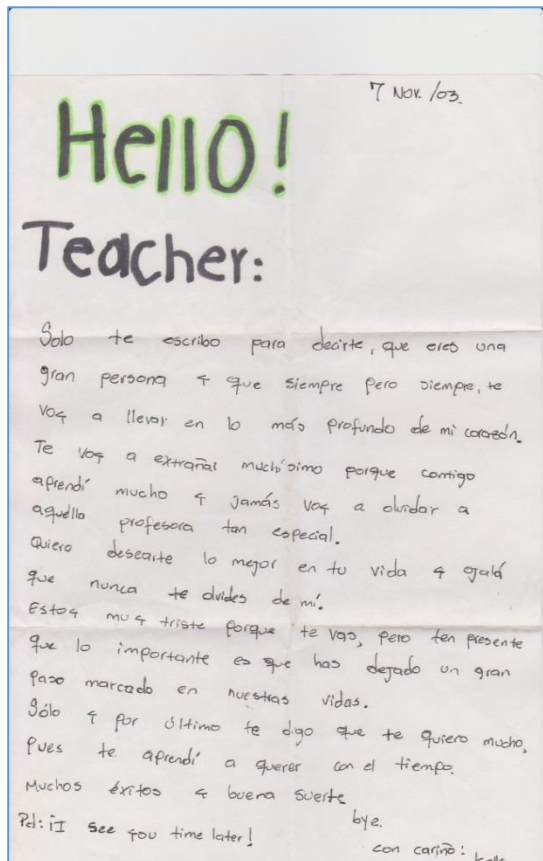 7 Nov. /03.
Hello!
Teacher:
Solo te escribo para decirte, que eres una
gran persona y que siempre pero siempre, te
voy a llevar en lo más profundo de mi corazón.
Te voy a extrañar muchísimo porque contigo
aprendí mucho y jamás voy a olvidar a
aquella profesora tan especial.
Quiero desearte lo mejor en tu vida y ojalá
que nunca te olvides de mí.
Estoy muy triste porque te vas, pero ten presente
que lo importante es que has dejado un gran
paso marcado en nuestras vidas.
Sólo y por último te digo que te quiero mucho,
pues te aprendí a querer con el tiempo.
Muchos éxitos y buena suerte
bye.
Pd: ¡I see you time later!
con cariño: